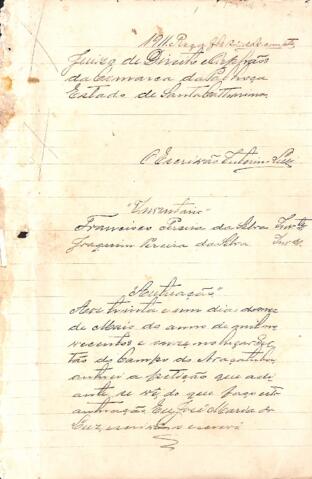 1911
Juizo de Direito e Orphãos
da Comarca da Palhoça
Estado de Santa Catharina
O Escrivão
"Inventario"
Francisco Pereira da Silva Invdo
Joaquim Pereira da Silva Invte
"Autuação"
Aos trinta e um dias do mez
de Maio do anno de mil no
vecentos e onze no lugar
do Campo do Araçatuba
autuei a petição que adi
ante se vê, do que faço esta
autuação. Eu José Maria da
Luz, escrivão o escrevi